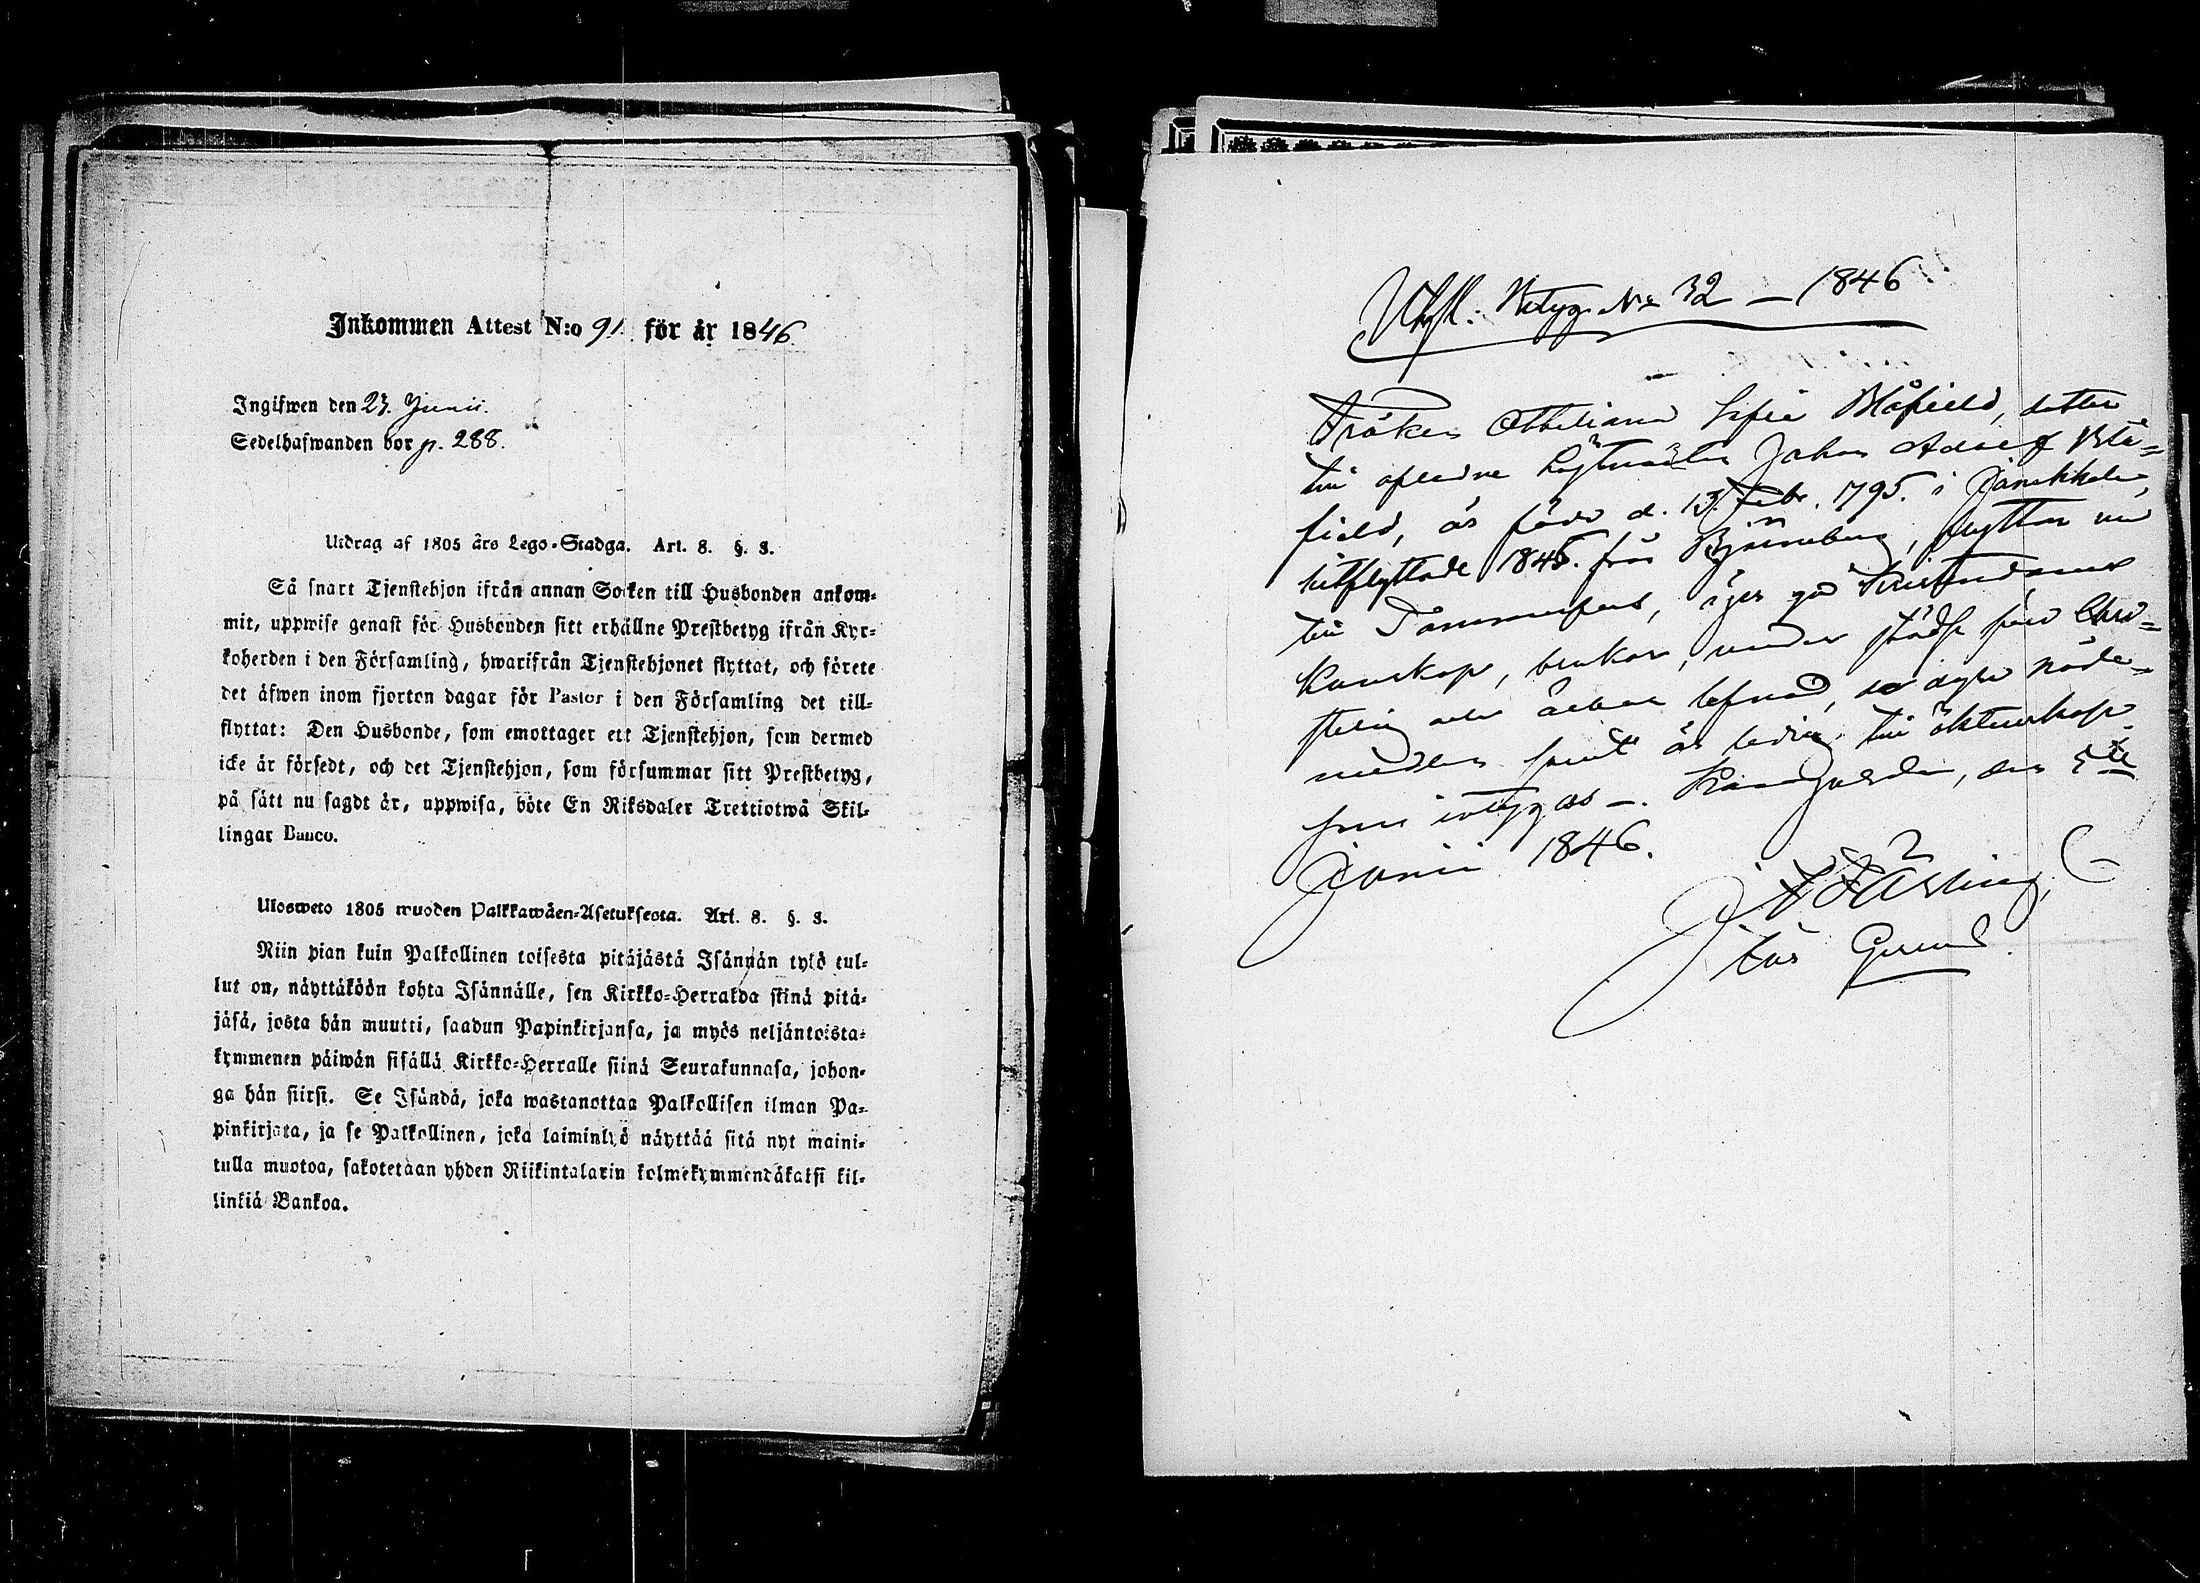 Inkommen Attest N:o 91. för år 1846.
Ingifwen den 23. Junii.
Sedelhafwanden bor p. 288.
Utdrag af 1805 års Lego-Stadga. Art. 8. §. 3.
Så snart Tjenstehjon ifrån annan Socken till Husbonden ankom-
mit, uppwise genast för Husbonden sitt erhållne Prestbetyg ifrån Kyr-
koherden i den Församling, hwarifrån Tjenstehjonet flyttat, och förete
det äfwen inom fjorton dagar för Pastor i den Församling det till-
flyttat: Den Husbonde, som emottager ett Tjenstehjon, som dermed
icke är försedt, och det Tjenstehjon, som försummar sitt Prestbetyg,
på sätt nu sagdt är, uppwisa, böte En Riksdaler Trettiotwå Skil-
lingar Banco.
Ulosweto 1805 wuoden Palkkawäen-Asetuksesta. Art. 8. §. 3.
Niin pian kuin Palkollinen toisesta pitäjästä Isännän tykö tul-
lut on, näyttäköön kohta Isännälle, sen Kirkko-Herralda siinä pitä-
jäsä, josta hän muutti, saadun Papinkirjansa, ja myös neljäntoista-
kymmenen päiwän sisällä Kirkko-Herralle siinä Seurakunnasa, johon-
ga hän siirsi. Se Isändä, joka wastanottaa Palkollisen ilman Pa-
pinkirjata, ja se Palkollinen, joka laiminlyö näyttää sitä nyt maini-
tulla muotoa, sakotetaan yhden Riikintalarin kolmekymmendäkaksi kil-
linkiä Bankoa.
Utfl. Betyg No 32 — 1846.
Fröken Ottiliana Sofia Blåfield, dotter
till afledne Löjtnanten Johan Adolf Blå-
field, är född d. 13. Febr. 1795. i Jämkkälä,
hitflyttade 1845. från Björneborg, flyttar nu
till Tammerfors, äger god Kristendoms
kunskap, brukar, under städse förd Christ-
telig och ärbar lefnad, de dyra nåde-
medlen samt är ledig till äktenskap
som intygas —. Kangasala, den 5te
Junii 1846.